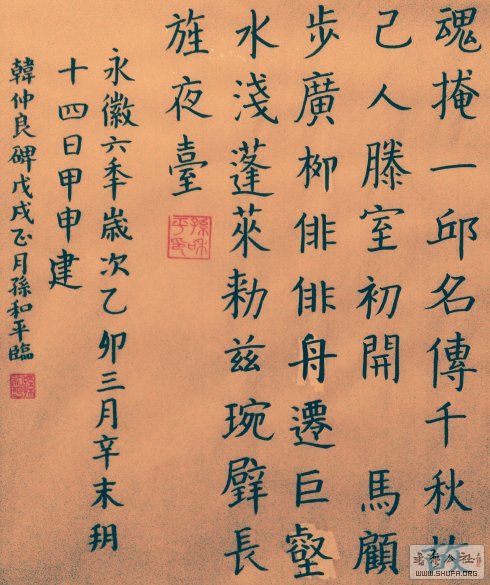 魂掩一邱名傳千秋
己人滕室初開 馬顧
步廣柳俳俳舟遷巨壑
水淺蓬萊勑兹琬璧長
旌夜臺
孫和平印
永徽六秊歲次乙卯三月辛未朔
十四日甲申建
韓仲良碑戊戌正月孫和平臨
WWW.SHUFA.ORG